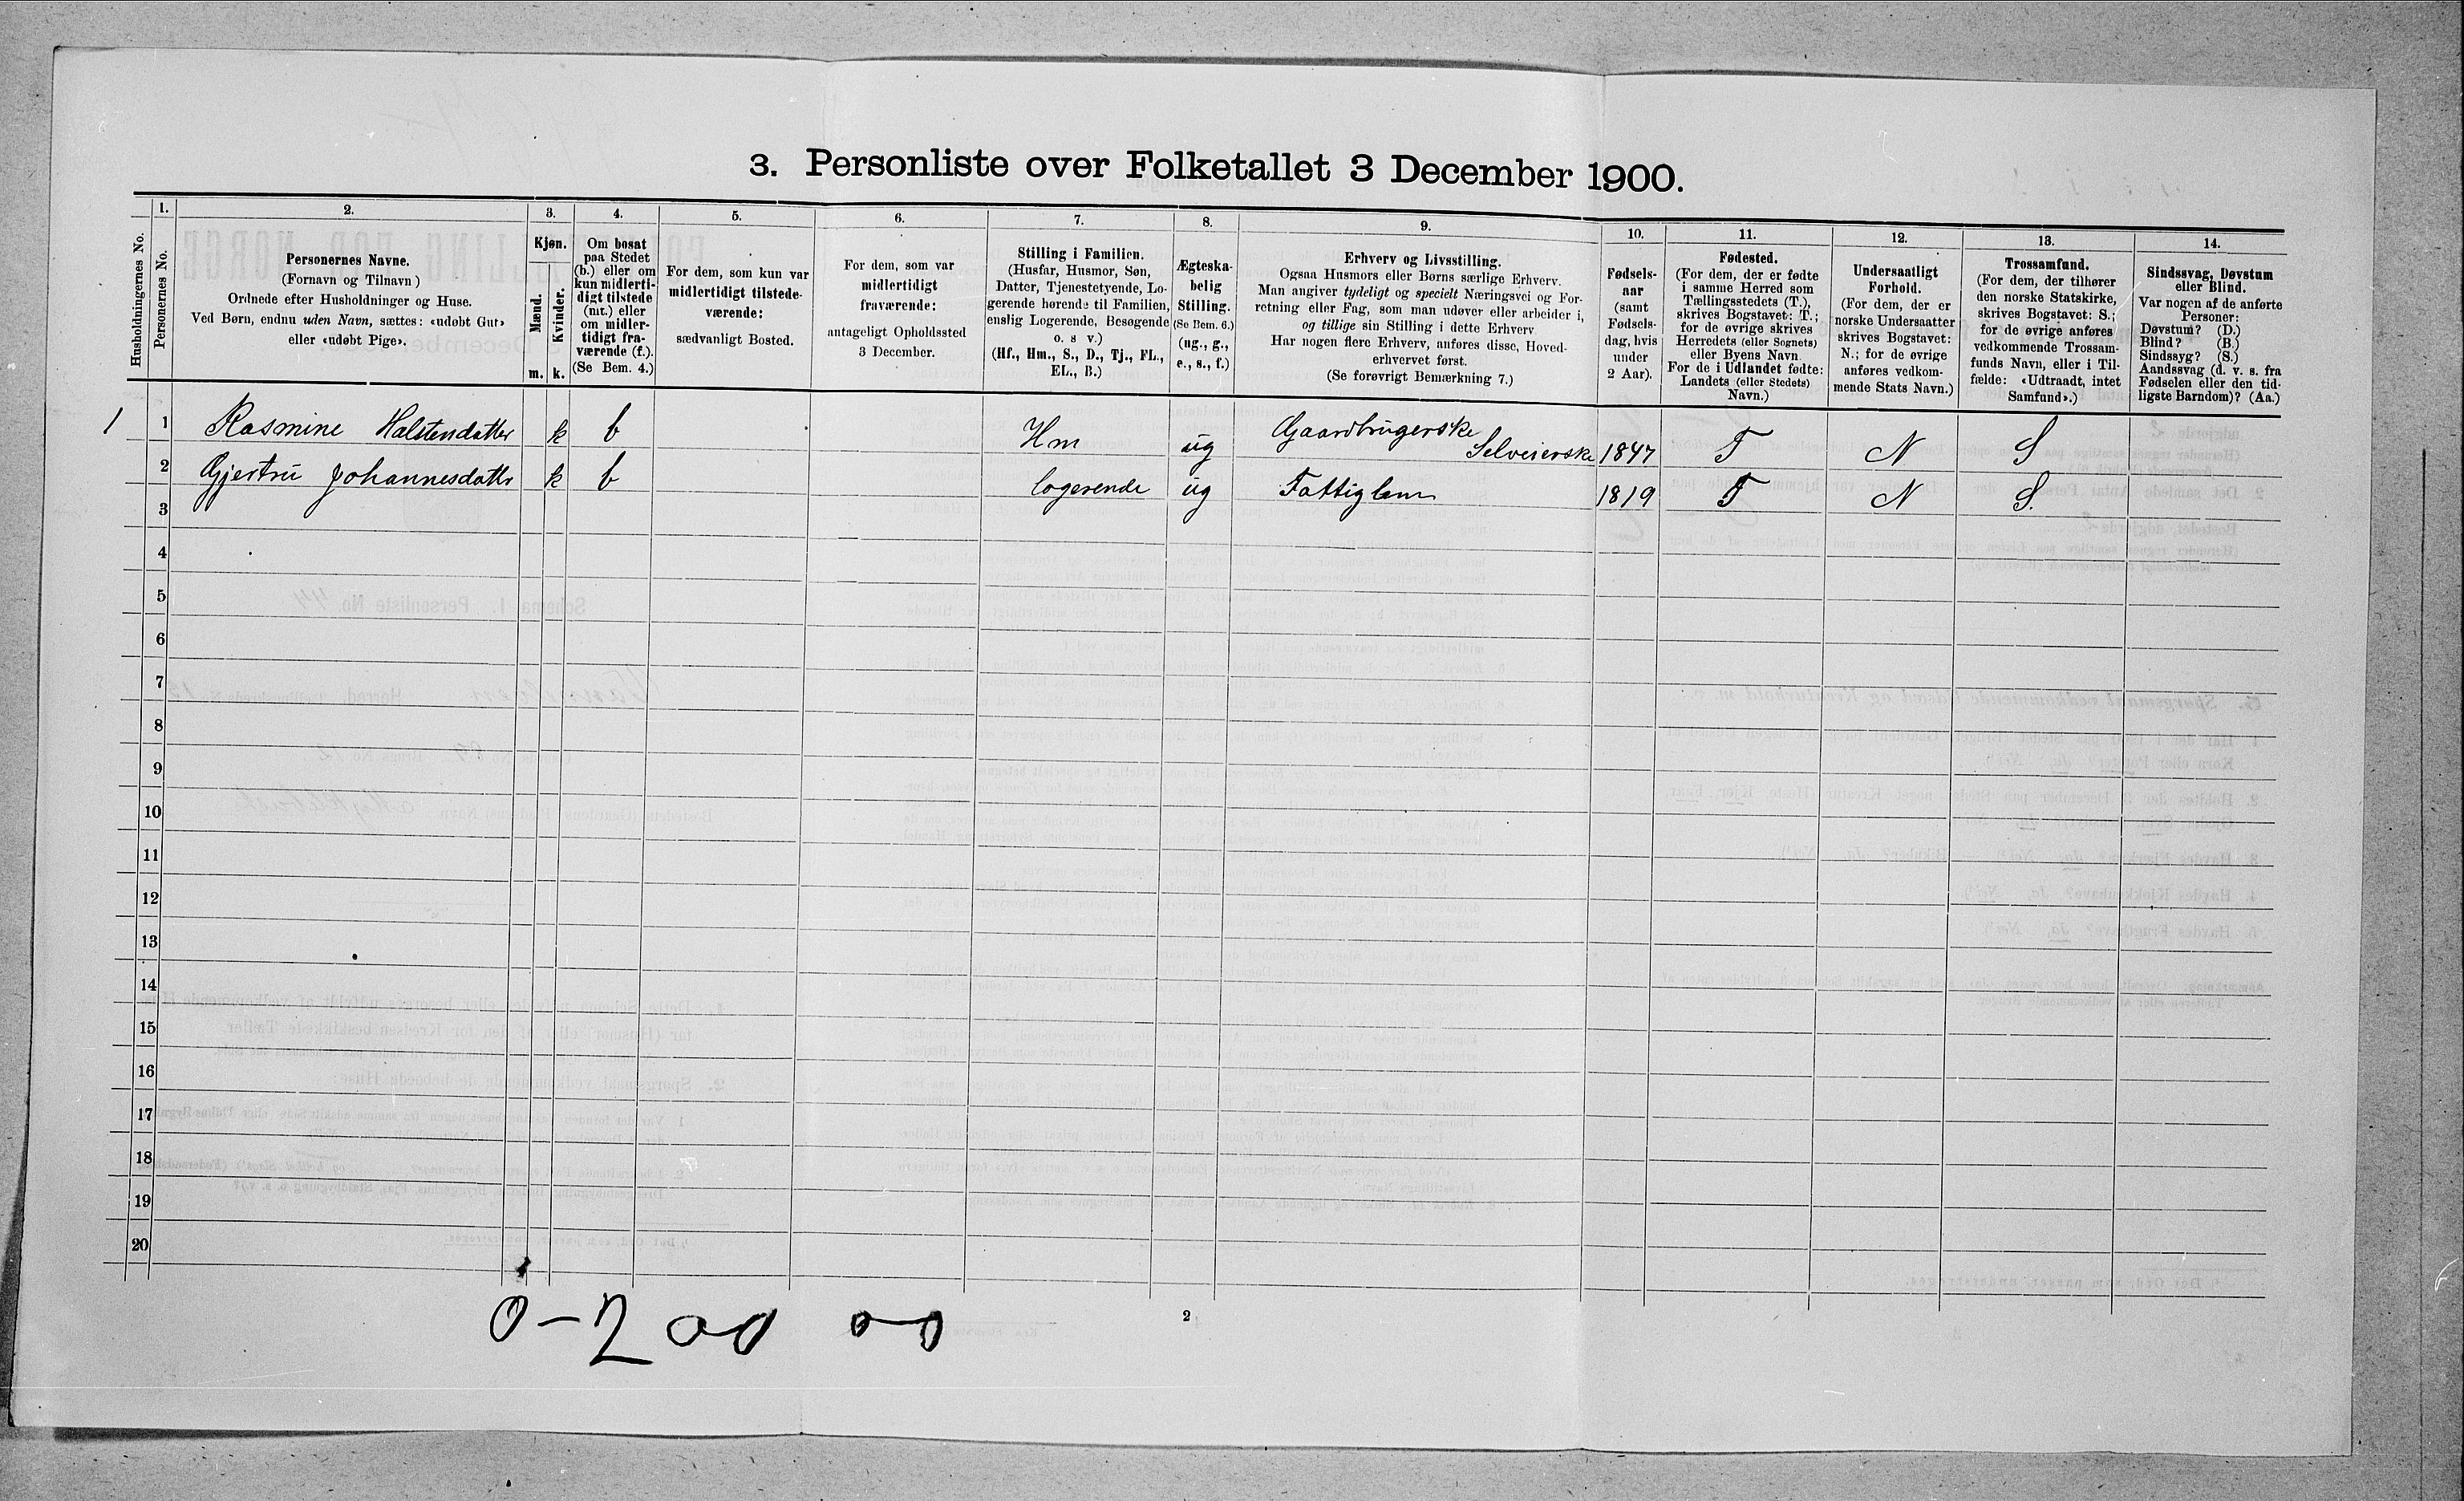 3. Personliste over Folketallet 3 December 1900.
Husholdningernes No.
1.
Personernes No.
2.
Personernes Navne.
(Fornavn og Tilnavn)
Ordnede efter Husholdninger og Huse.
Ved Børn, endnu uden Navn, sættes: «udøbt Gut»
eller «udøbt Pige».
3.
Kjøn.
Mænd.
Kvinder.
m. k.
4.
Om bosat
paa Stedet
(b.) eller om
kun midlerti-
digt tilstede
(mt.) eller
om midler-
tidigt fra-
værende (f.).
(Se Bem. 4.)
5.
For dem, som kun var
midlertidigt tilstede-
værende:
sædvanligt Bosted.
6.
For dem, som var
midlertidigt
fraværende:
antageligt Opholdssted
3 December.
7.
Stilling i Familien.
(Husfar, Husmor, Søn,
Datter, Tjenestetyende, Lo-
gerende hørende til Familien,
enslig Logerende, Besøgende
o. s v.)
(Hf., Hm., S., D., Tj., FL.,
EL., B.)
8.
Ægteska-
belig
Stilling.
(Se Bem. 6.)
(ug., g.,
e., s., f.)
9.
Erhverv og Livsstilling.
Ogsaa Husmors eller Børns særlige Erhverv.
Man angiver tydeligt og specielt Næringsvei og For-
retning eller Fag, som man udøver eller arbeider i,
og tillige sin Stilling i dette Erhverv
Har nogen flere Erhverv, anføres disse, Hoved-
erhvervet først.
(Se forøvrigt Bemærkning 7.)
10.
Fødsels-
aar
(samt
Fødsels-
dag, hvis
under
2 Aar).
11.
Fødested.
(For dem, der er fødte
i samme Herred som
Tællingsstedets (T.),
skrives Bogstavet: T.;
for de øvrige skrives
Herredets (eller Sognets)
eller Byens Navn
For de i Udlandet fødte:
Landets (eller Stedets)
Navn.)
12.
Undersaatligt
Forhold.
(For dem, der er
norske Undersaatter
skrives Bogstavet:
N.; for de øvrige
anføres vedkom-
mende Stats Navn.)
13.
Trossamfund.
(For dem, der tilhører
den norske Statskirke,
skrives Bogstavet: S.;
for de øvrige anføres
vedkommende Trossam-
funds Navn, eller i Til-
fælde: «Udtraadt, intet
Samfund».)
14.
Sindssvag, Døvstum
eller Blind.
Var nogen af de anførte
Personer:
Døvstum? (D.)
Blind? (B.)
Sindssyg? (S.)
Aandssvag (d. v. s. fra
Fødselen eller den tid-
ligste Barndom)? (Aa.)
1 1 Rasmine Halstendatter k b Hm ug Gaardbrugerske Selveierske 1847 T N S
2 Gjertru Johannesdatter k b logerende ug Fattiglem 1819 T N S.
3
4
5
6
7
8
9
10
11
12
13
14
15
16
17
18
19
20
0-2 00 00
2